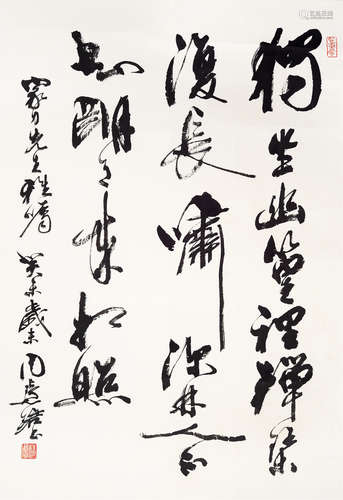 獨坐幽篁裡彈琴
復長嘯深林人不
知明月来相照
先生雅嘱 癸未歲末 周慧珺